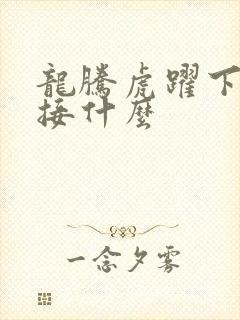 龍騰虎躍下
接什麼
一念夕雾